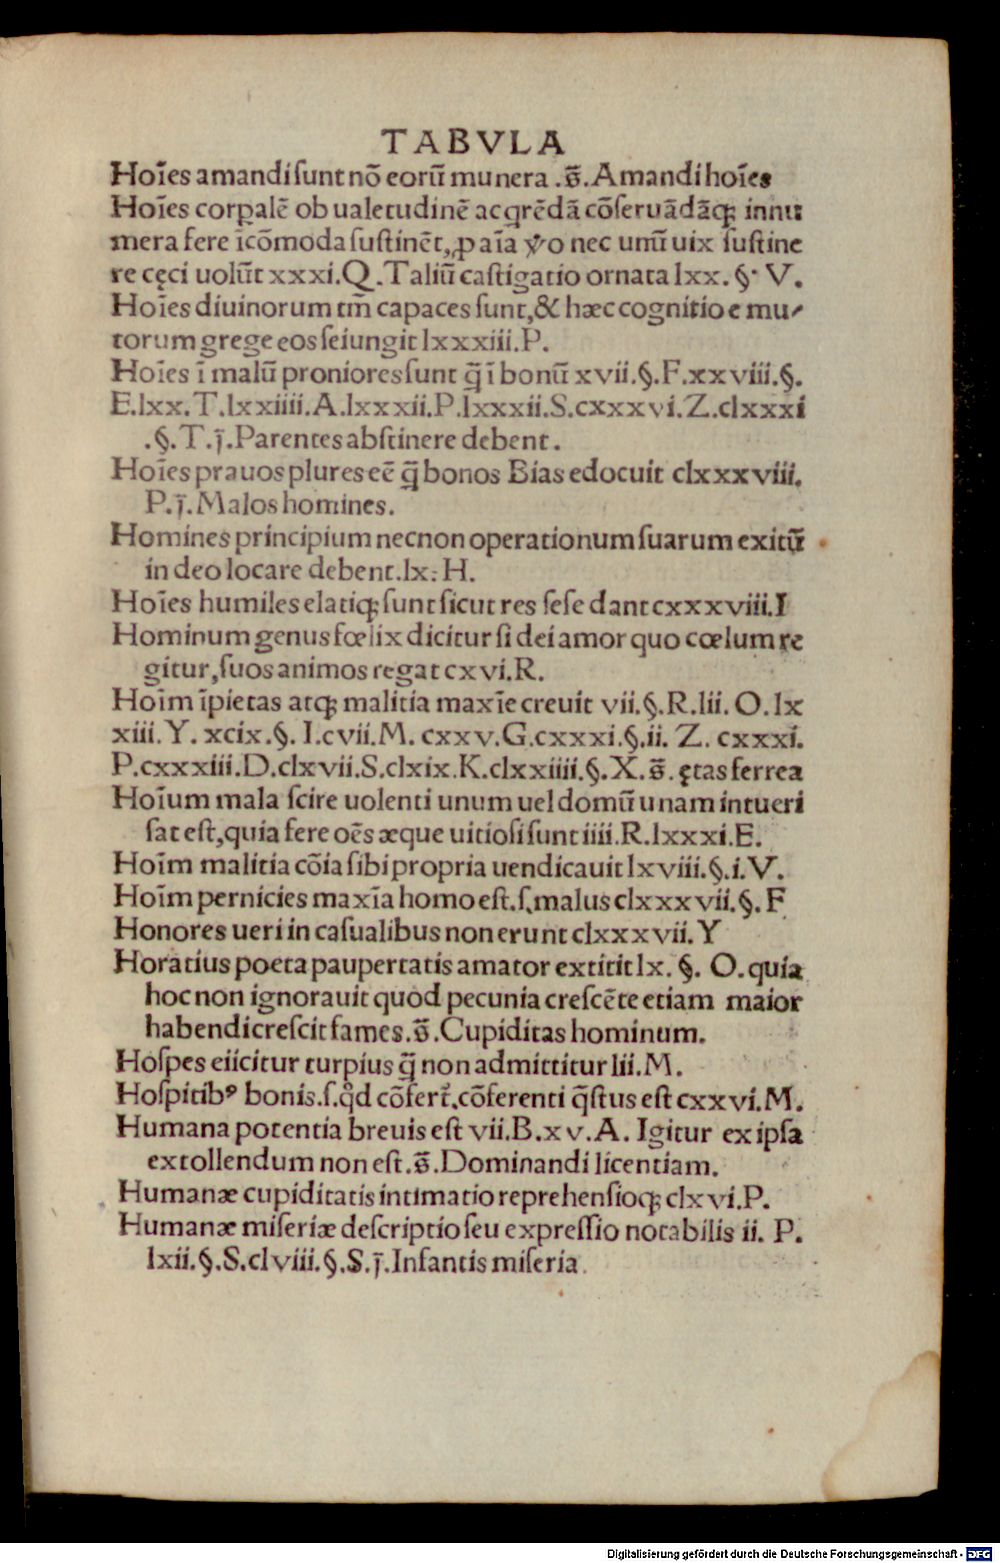 TABVLA
Hoīes amandi ſunt nō eorū munera .ẜ̄. Amandi hoīes
Hoīes corꝑalē ob ualetudinē acqrēdā cōſeruādāqꝫ innu⸗
mera fere īcōmoda ſuſtinēt, ꝓ aīa ꝟo nec unū uix ſuſtine
re cęci uolūt xxxi.Q. Taliū caſtigatio ornata lxx. §. V.
Hoīes diuinorum tm̄ capaces ſunt, & hæc cognitio e mu⸗
torum grege eos ſeiungit lxxxiii.P.
Hoīes ī malū proniores ſunt q̄̃ ī bonū xvii.§.F.xxviii.§.
E.lxx.T.lxxiiii.A.lxxxii.P.lxxxii.S.cxxxvi.Z.clxxxi
.§.T.j̄.Parentes abſtinere debent.
Hoīes prauos plures eē q̄̃ bonos Bias edocuit clxxxviii.
P.j̄.Malos homines.
Homines principium necnon operationum ſuarum exitū
in deo locare debent.lx.H.
Hoīes humiles elatiqꝫ ſunt ſicut res ſeſe dant cxxxviii.I
Hominum genus fœlix dicitur ſi dei amor quo cœlum re
gitur, ſuos animos regat cxvi.R.
Hoīm īpietas atqꝫ malitia maxīe creuit vii.§.R.lii. O.lx
xiii. Y. xcix.§. I.cvii.M. cxxv.G.cxxxi.§.ii. Z. cxxxi.
P.cxxxiii.D.clxvii.S.clxix.K.clxxiiii.§.X.ẜ̄. ętas ferrea
Hoīum mala ſcire uolenti unum uel domū unam intueri
ſat eſt, quia fere oēs æque uitioſi ſunt iiii.R.lxxxi.E.
Hoīm malitia cōīa ſibi propria uendicauit lxviii.§.i.V.
Hoīm pernicies maxīa homo eſt.ſ.malus clxxxvii.§. F
Honores ueri in caſualibus non erunt clxxxvii.Y
Horatius poeta paupertatis amator extitit lx. §. O.quia
hoc non ignorauit quod pecunia creſcēte etiam maior
habendi creſcit fames.ẜ̄.Cupiditas hominum.
Hoſpes eiicitur turpius q̄̃ non admittitur lii.M.
Hoſpitibꝰ bonis.ſ.qd̓ cōfert̄.cōferenti q̄ſtus eſt cxxvi.M.
Humana potentia breuis eſt vii.B.xv.A. Igitur ex ipſa
extollendum non eſt.ẜ̄.Dominandi licentiam.
Humanæ cupiditatis intimatio reprehenſioqꝫ clxvi.P.
Humanæ miſeriæ deſcriptio ſeu expreſſio notabilis ii. P.
lxii.§.S.clviii.§.S.j̄.Infantis miſeria.
Digitalisierung gefördert durch die Deutsche Forschungsgemeinschaft - DFG